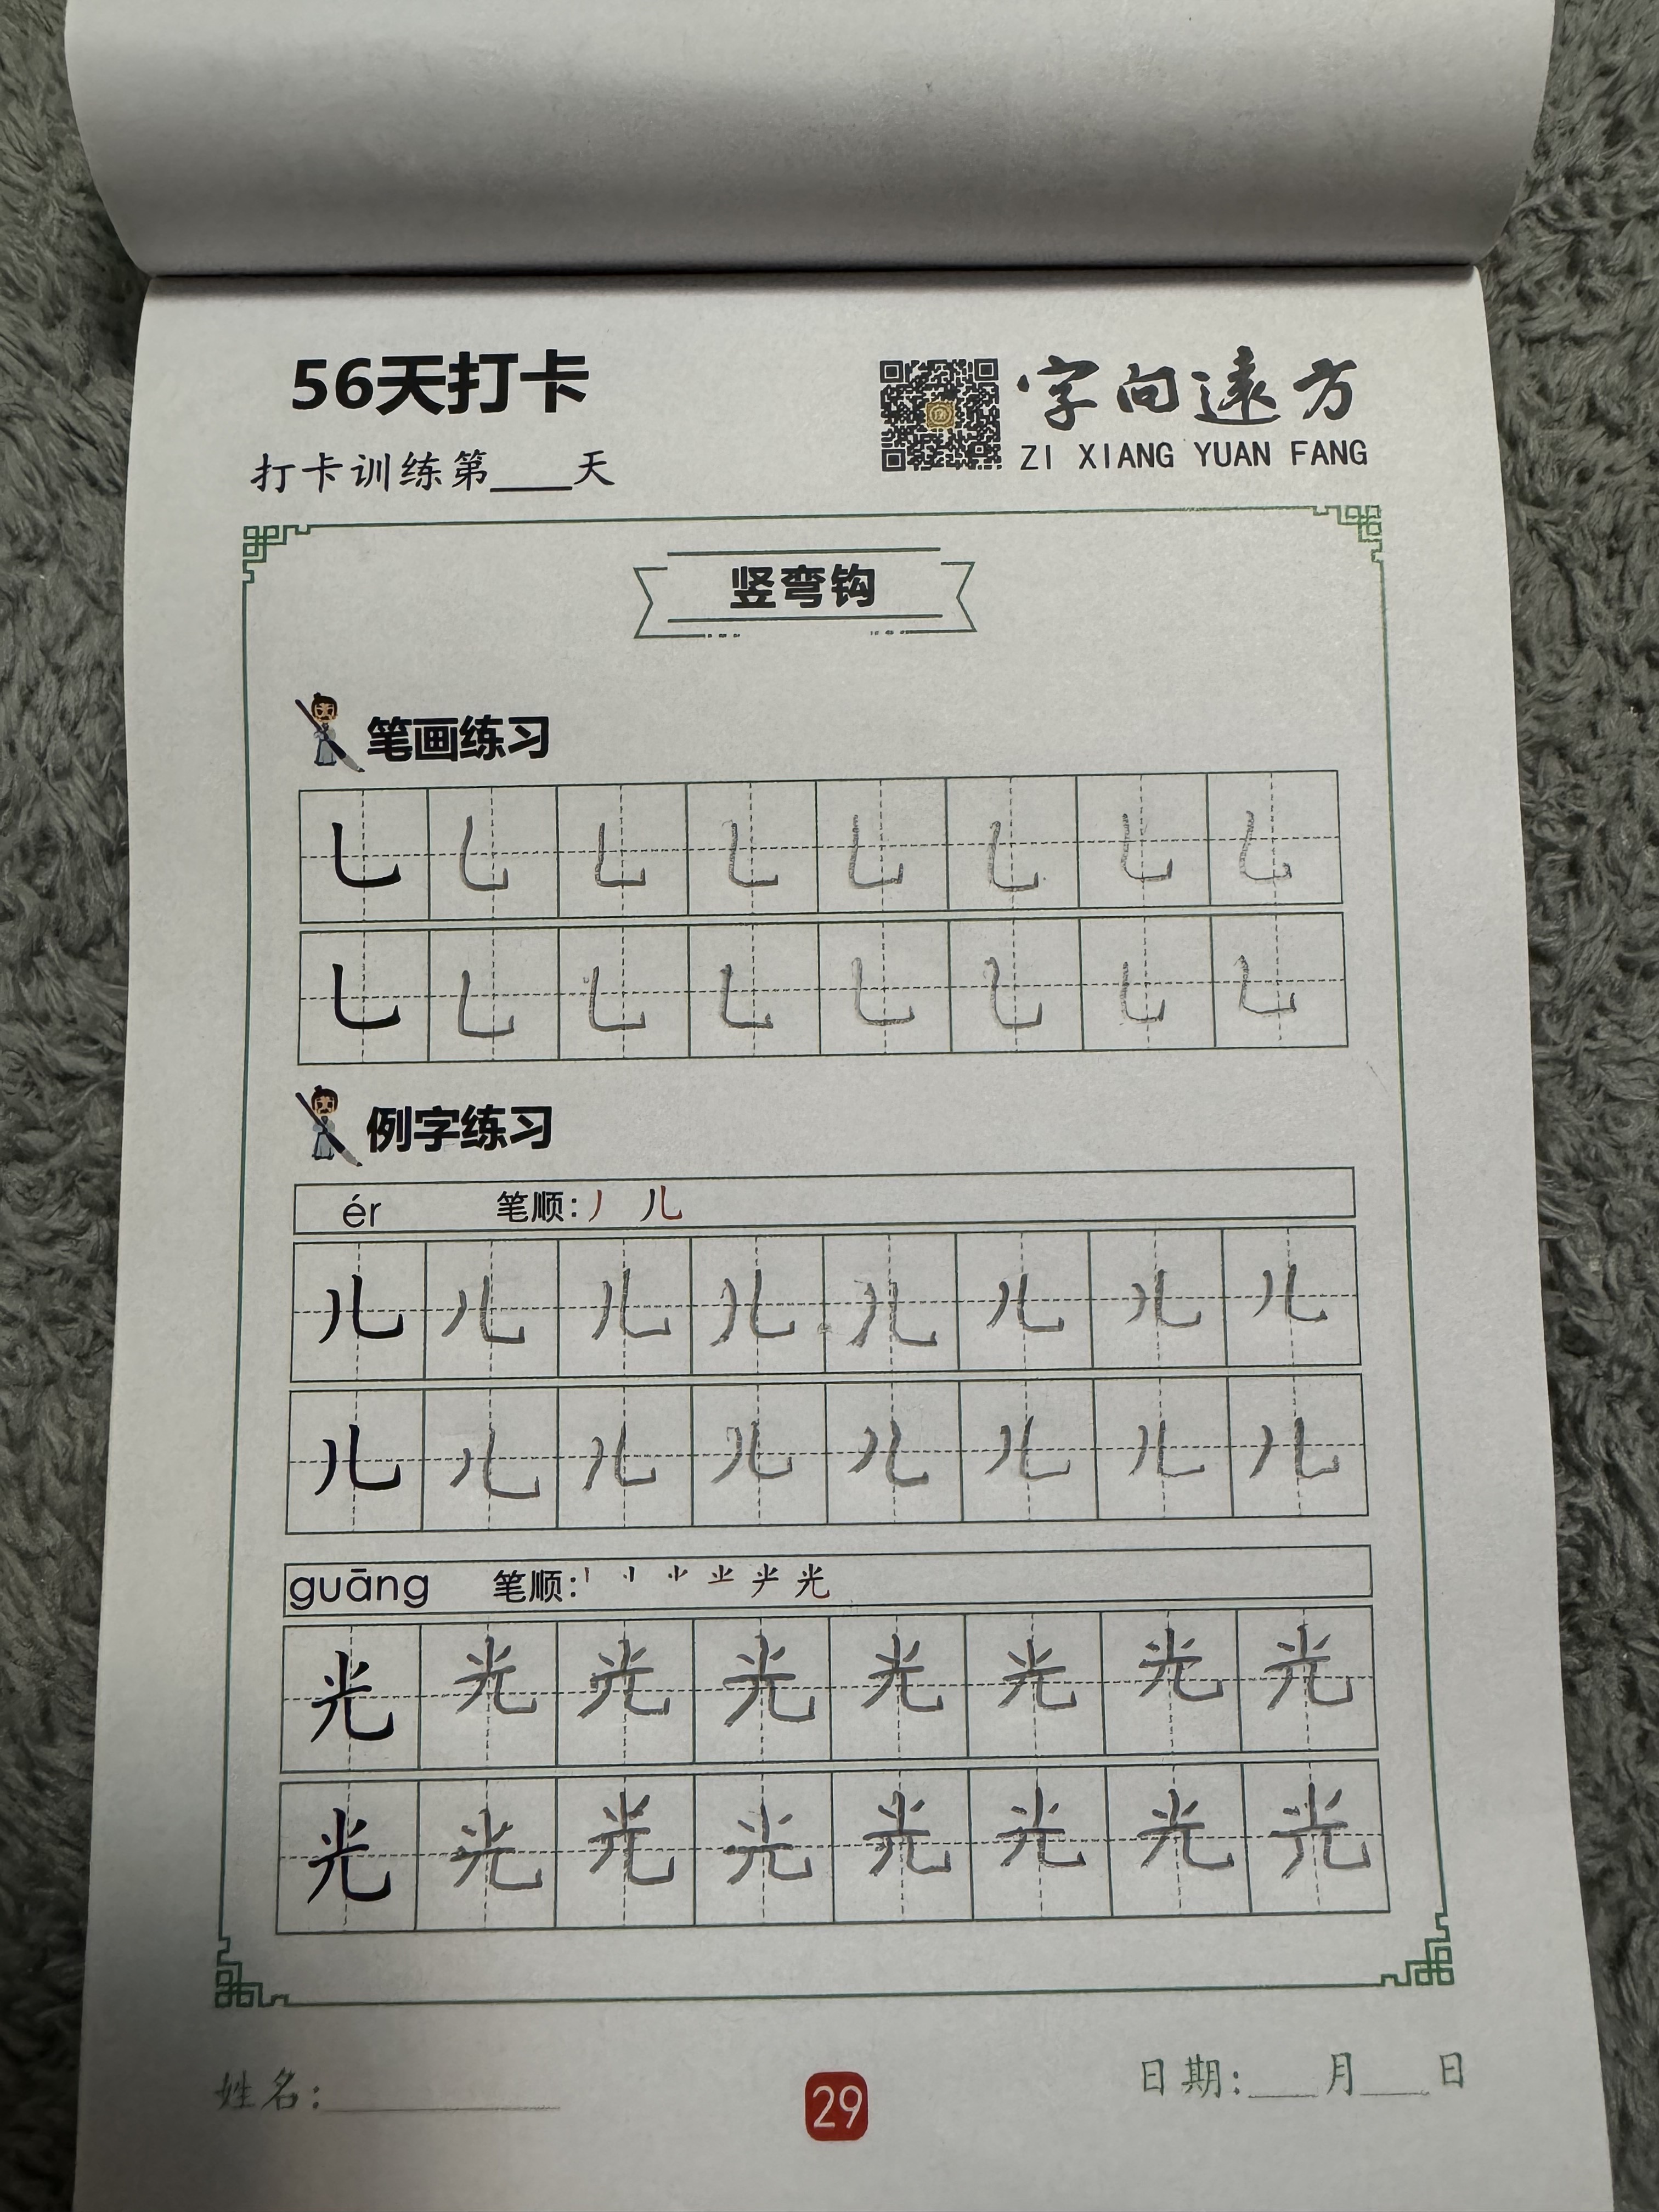 56天打卡
字向遠方
打卡训练第____天
ZI XIANG YUAN FANG
竖弯钩
笔画练习
乚 乚 乚 乚 乚 乚 乚 乚
乚 乚 乚 乚 乚 乚 乚 乚
例字练习
ér 笔顺：丿 儿
儿 儿 儿 儿 儿 儿 儿 儿
儿 儿 儿 儿 儿 儿 儿 儿
guāng 笔顺：光
光 光 光 光 光 光 光 光
光 光 光 光 光 光 光 光
姓名：____________
日期：____月____日
29